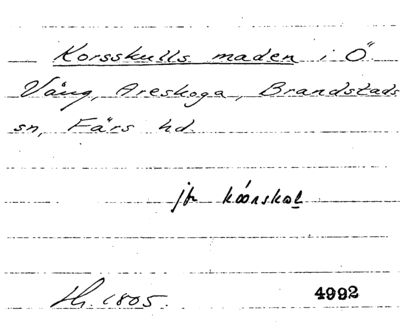 Korsskulls maden i Ö.
Vång, Areskoga, Brandstads
sn, Färs hd.
jfr kóorskot
Hg. 1805. 4992